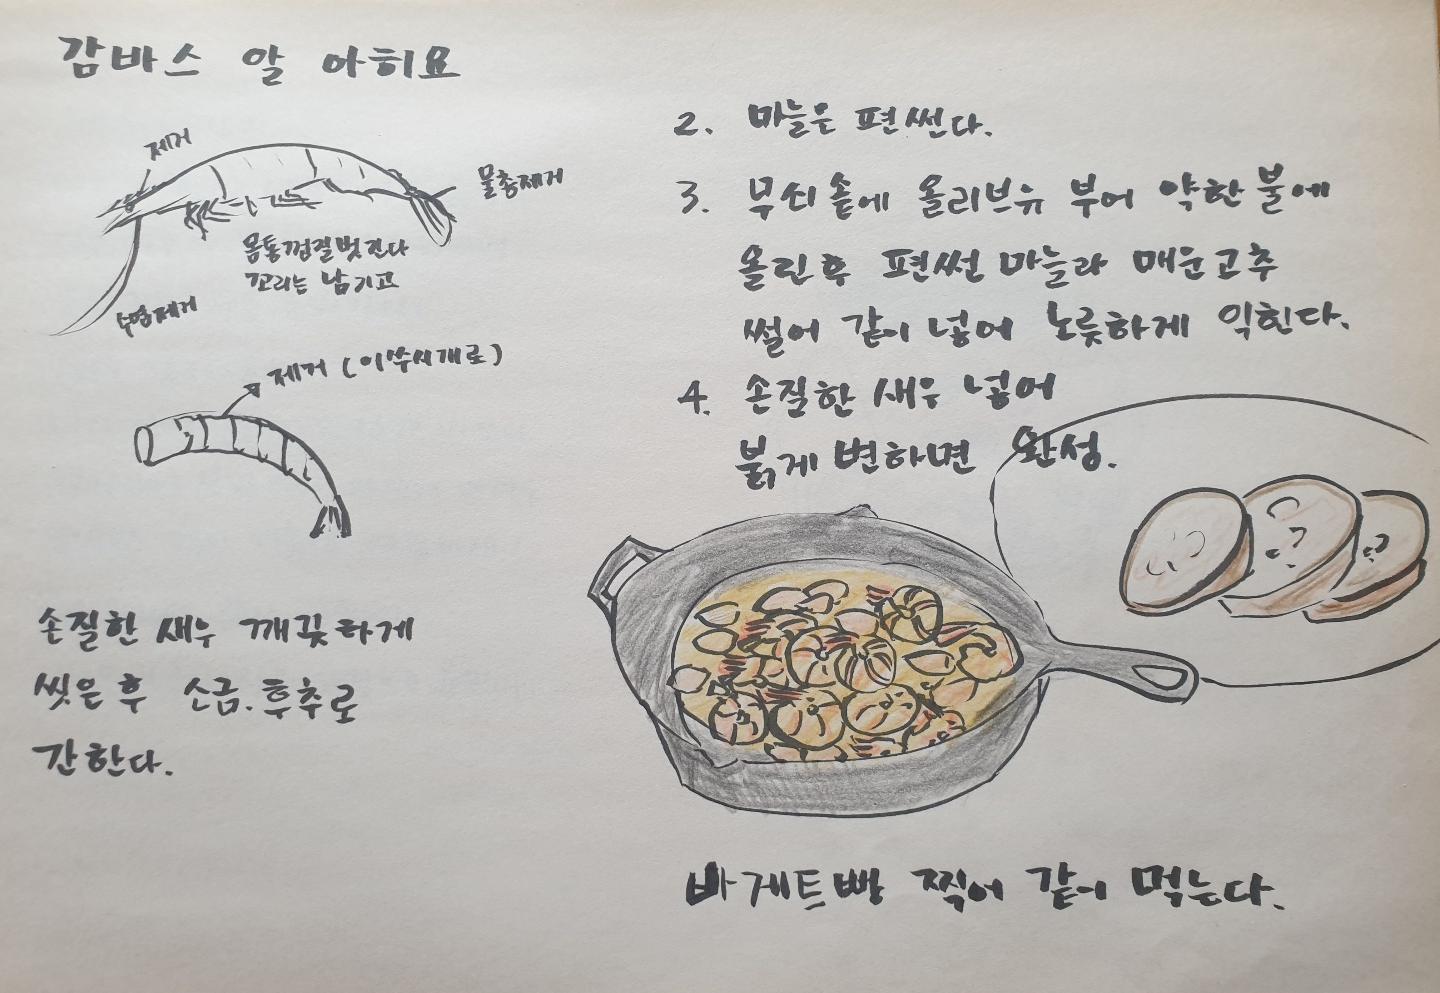 감바스 알 아히요
제거
물총제거
몸통껍질벗긴다
꼬리는 남기고
수염제거
제거 (이쑤시개로)
손질한 새우 깨끗하게
씻은 후 소금.후추로
간한다.
2. 마늘은 편썬다.
3. 무쇠솥에 올리브유 부어 약한불에
올린후 편썬 마늘과 매운고추
썰어 같이 넣어 노릇하게 익힌다.
4. 손질한 새우 넣어
붉게 변하면 완성.
바게트빵 찍어 같이 먹는다.